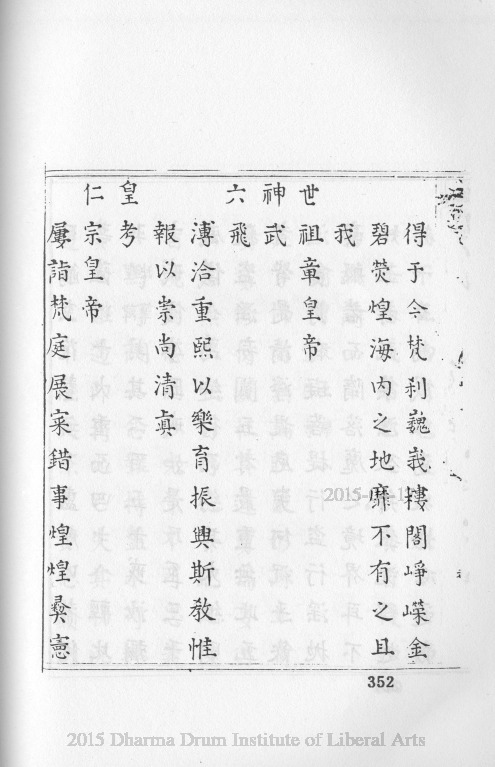 得于今梵刹巍峩樓閣崢嶸金
碧熒煌海内之地靡不有之且
我
世祖章皇帝
神武
六飛
溥洽重熙以樂育振興斯教惟
報以崇尚清眞
皇考
仁宗皇帝
屢詣梵庭展寀錯事煌煌彝憲
352
2015 Dharma Drum Institute of Liberal Arts